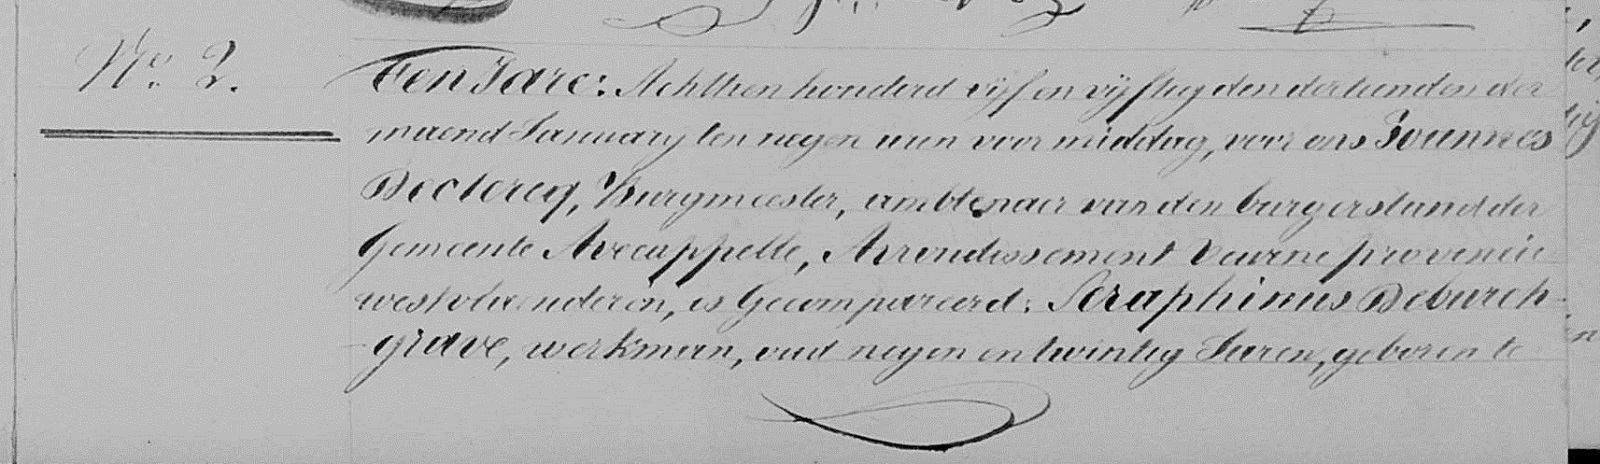 No. 2.
Ten Jare: Achttien honderd vyf en vyftig den dertienden der
maend January ten negen uren voor middag, voor ons Joannes
Declercq, Burgmeester, ambtenaer van den burgerstand der
Gemeente Avecappelle, Arrondissement Veurne provincie
westvlaenderen, is Gecompareerd: Seraphinus Deburch-
-grave, werkman, oud negen en twintig Jaren, geboren te